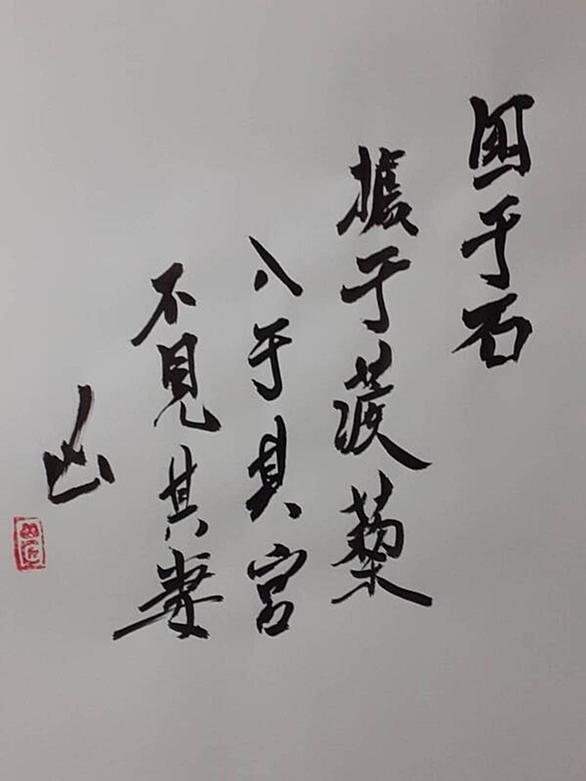 困于石
據于蒺藜
入于其宮
不見其妻
凶